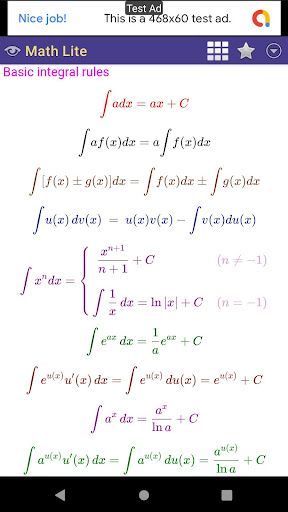 Test Ad
Nice job! This is a 468x60 test ad.
Math Lite
Basic integral rules
∫adx = ax + C
∫af(x)dx = a∫f(x)dx
∫[f(x) ± g(x)]dx = ∫f(x)dx ± ∫g(x)dx
∫u(x) dv(x) = u(x)v(x) − ∫v(x)du(x)
∫xⁿdx = { xⁿ⁺¹/(n + 1) + C (n ≠ −1)
∫1/x dx = ln |x| + C (n = −1)
∫e^{ax} dx = 1/a e^{ax} + C
∫e^{u(x)}u′(x) dx = ∫e^{u(x)} du(x) = e^{u(x)} + C
∫a^x dx = a^x/ln a + C
∫a^{u(x)}u′(x) dx = ∫a^{u(x)} du(x) = a^{u(x)}/ln a + C